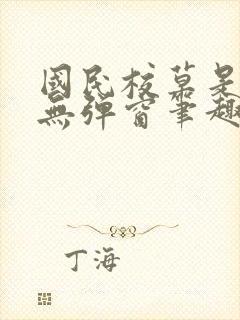 國民校草是
無彈窗筆趣
丁海